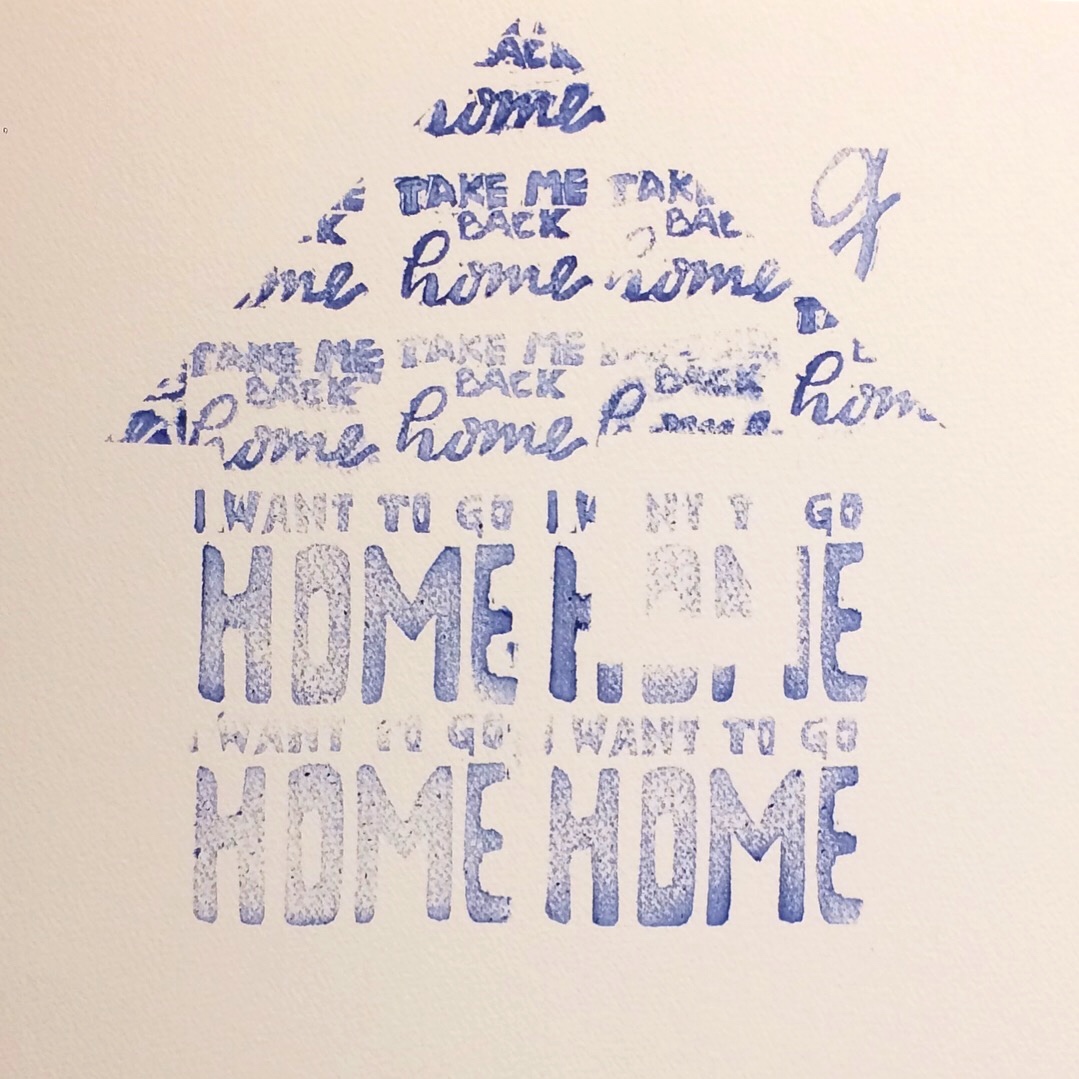 ACK
some
TAKE ME TAK
K BACK BAC
me home home
TAKE ME TAKE ME
BACK BACK BACK
home home home
I WANT TO GO I W NT T GO
HOME H ME
I WANT TO GO I WANT TO GO
HOME HOME